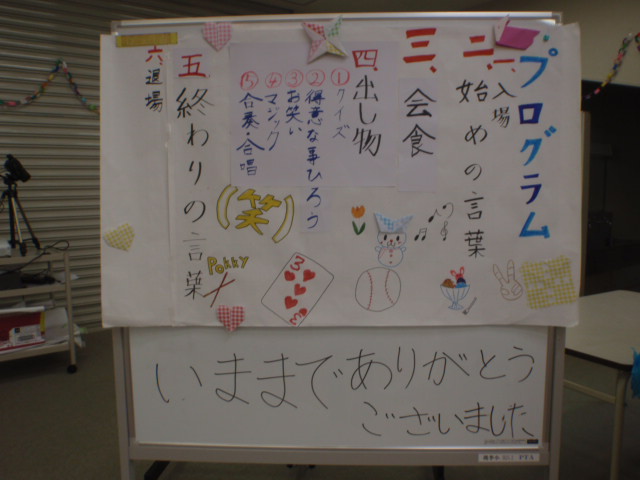 プログラム
一、入場
二、始めの言葉
三、会食
四、出し物
①クイズ
②得意な事ひろう
③お笑い
④マジック
⑤合奏・合唱
五、終わりの言葉
六、退場
(笑)
Pokky
3
3
いままでありがとう
ございました